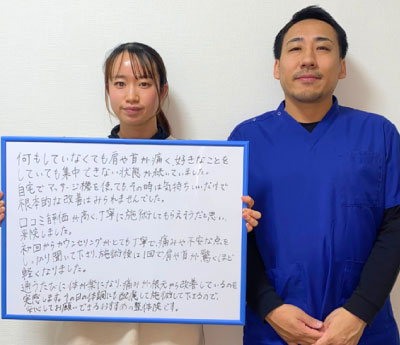 何もしていなくても肩や首が痛く、好きなことを
していても集中できない状態が続いていました。
自宅でマッサージ機を使っても、その時は気持ちいいだけで
根本的な改善はみられませんでした。
口コミ評価が高く、丁寧に施術してもらえそうだと思い、
来院しました。
初回からカウンセリングがとても丁寧で、痛みや不安な点を
しっかり聞いて下さり、施術後は1回で肩や首が驚くほど
軽くなりました。
通うたびに体が楽になり、痛みが根元から改善しているのを
実感します。その日の体調にも配慮して施術して下さるので、
安心してお願いできるおすすめの整体院です。